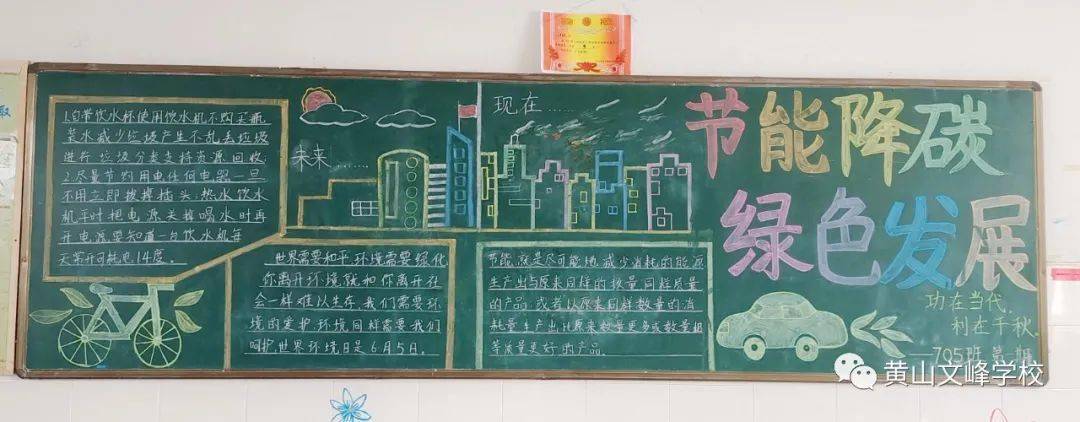 1.自带饮水杯使用饮水机不购买瓶
装水减少垃圾产生不乱丢垃圾
进行垃圾分类支持资源回收.
2.尽量节约用电任何电器一旦
不用立即拔掉插头.热水饮水
机平时把电源关掉喝水时再
开电源要知道一台饮水机每
天常开可耗电14度。
未来......
现在......
世界需要和平,环境需要绿化
你离开环境就和你离开社
会一样难以生存.我们需要环
境的爱护.环境同样需要我们
呵护.世界环境日是6月5日。
节能.就是尽可能地减少消耗的能源
生产出与原来同样的数量.同样质量
的产品.或者以原来同样数量的消
耗量.生产出比原来数量更多或数量相
等质量更好的产品.
节能降碳
绿色发展
功在当代,
利在千秋.
——705班
黄山文峰学校